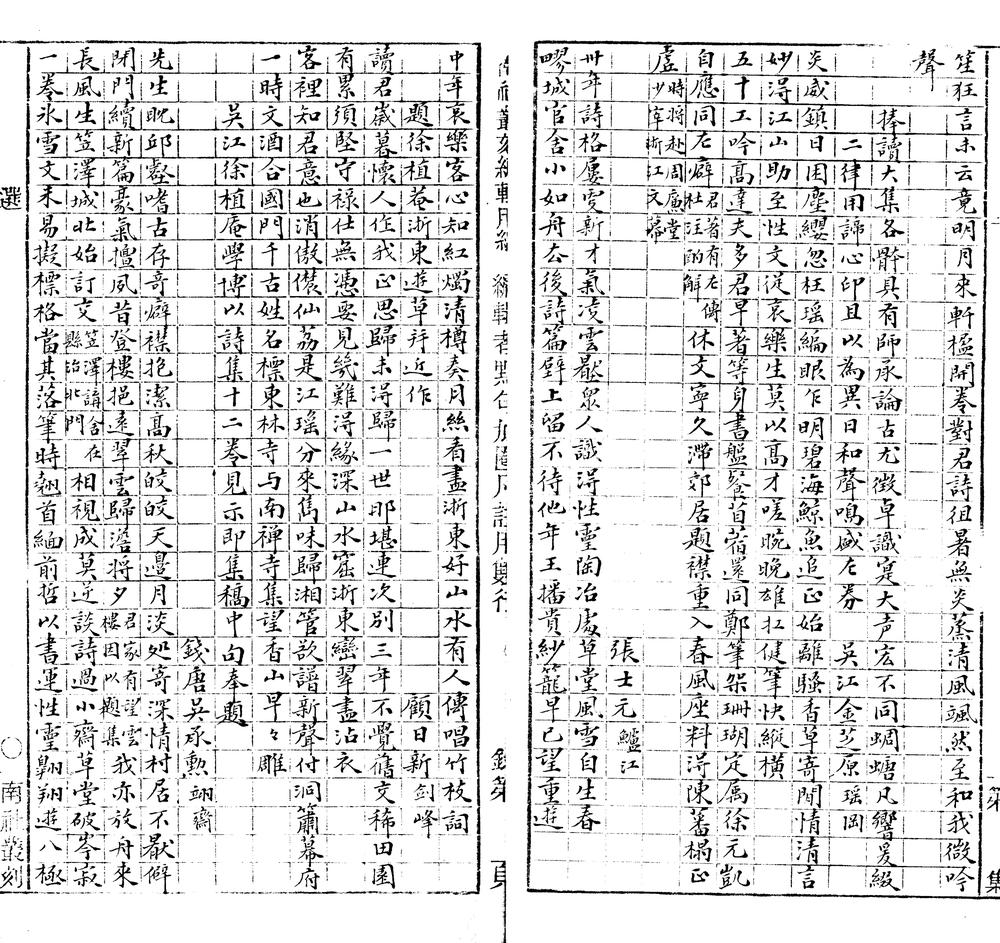 笙狂言未云竟明月來軒楹開卷對君詩徂暑無炎蒸清風颯然至和我微吟
聲
捧讀大集各骿具有師承論古尤徵卓識寔大声宏不同蜩螗凡響爰綴
二律用諦心印且以為異日和聲鳴盛左券　吳江金芝原瑶岡
炎威鎮日困塵纓忽枉瑶編眼乍明碧海鯨魚追正始離騷香草寄閒情清言
妙得江山助至性文從哀樂生莫以高才嗟晼晚雄扛健筆快縱横
五十工吟高達夫多君早著等身書盤飱苜蓿還同鄭筆架珊瑚定属徐元凱
自應同左癖君著有左傳杜注酌解休文寧久滞郊居題襟重入春風座料得陳蕃榻正
虚時將赴周廉堂少宰浙江文幕
張士元鱸江
卅年詩格屢变新才氣凌雲厭衆人識得性靈陶冶處草堂風雪自生春
疁城官舍小如舟去後詩篇壁上留不待他年王播貴紗籠早已望重遊
中年哀樂客心知紅燭清樽奏月絲看盡浙東好山水有人傳唱竹枝詞
題徐植菴浙東遊草并近作　顧日新剑峰
讀君嵗暮懷人作我正思歸未得歸一世那堪連次別三年不覺舊交稀田園
有累須堅守禄仕無憑要見幾難得緣深山水窟浙東巒翠盡沾衣
客裡知君意也消傲儻仙荔是江瑶分來雋味歸湘管欲譜新聲付洞簫幕府
一時文酒合國門千古姓名標東林寺与南禅寺集望香山早々雕
吳江徐植庵學博以詩集十二卷見示即集稿中句奉題
錢唐吳承勲翊齋
先生眈邱壑嗜古存奇癖襟抱潔高秋皎皎天邊月淡処寄深情村居不厭僻
閉門續新篇豪氣擅夙昔登樓挹遠翠雲歸澹将夕君家有望雲樓因以題集我亦放舟來
長風生笠澤城北始訂交笠澤講舍在縣治北門相視成莫逆談詩過小齋草堂破岑寂
一卷氷雪文未易擬標格當其落筆時翹首緬前哲以書運性靈翺翔遊八極
選
○南社叢刻
第
集
頁